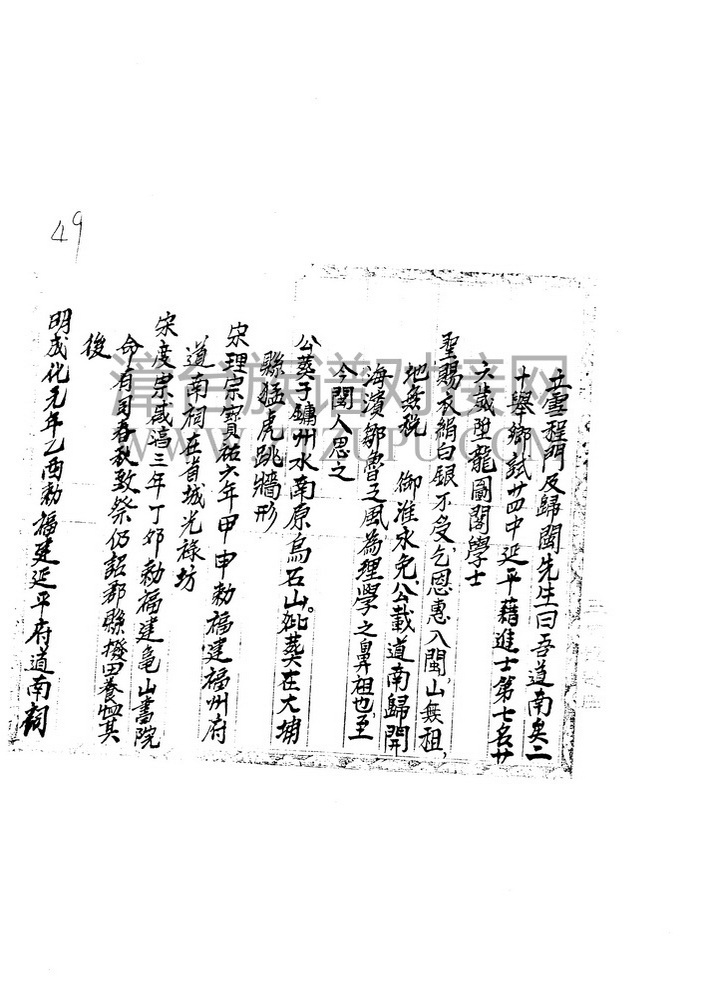 49
立雪程門及歸閩先生曰吾道南矣二
十舉鄉試廿四中延平藉進士第七名廿
六歲陞龍圖閣學士
聖賜衣絹白銀不受乞恩惠入閩,山無租,
地無稅 御淮水免,公載道南歸開
海濱鄒魯之風為理學之鼻祖也,至
今閩人思之
公葬于鏞州水南原烏石山。妣葬在大埔
縣猛虎跳牆形
宋理宗寶祐六年甲申勅福建福州府
道南祠在省城光祿坊
宋度宗咸淳三年丁卯勅福建龜山書院
命有司春秋致祭仍詔郡縣撥田養恤其
後
明成化元年乙酉勅福建延平府道南祠
漳台族谱对接网
WWW.ZTZUPU.COM